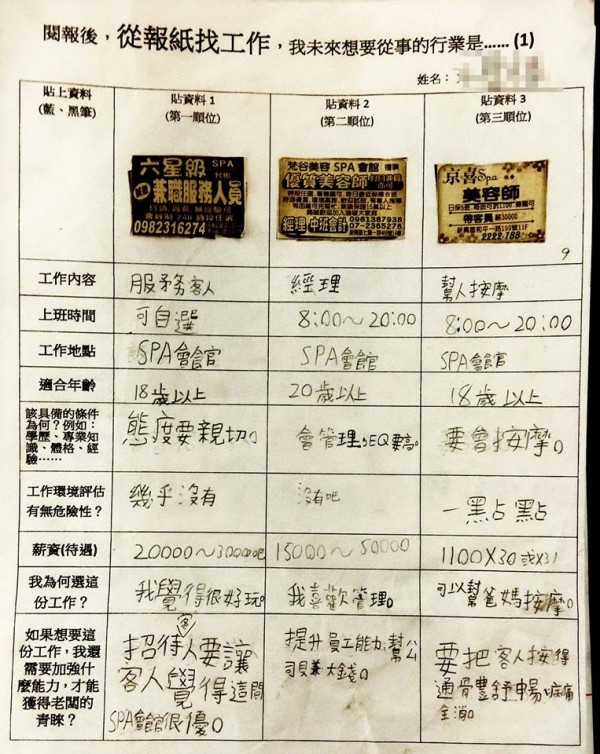 閱報後，從報紙找工作，我未來想要從事的行業是......(1)
姓名：
貼上資料
(藍、黑筆)
貼資料 1
(第一順位)
貼資料 2
(第二順位)
貼資料 3
(第三順位)
六星級 SPA
兼職服務人員
0982316274
梵谷美容 SPA 會館
優質美容師
經理 中班會計
0981387938
07-2365276
京喜Spa
美容師
帶客員
2222-788
9
工作內容
服務客人
經理
幫人按摩
上班時間
可自選
8:00～20:00
8:00～20:00
工作地點
SPA會官
SPA會館
SPA會館
適合年齡
18歲以上
20歲以上
18歲以上
該具備的條件
為何？例如：
學歷、專業知
識、體格、經
驗……
態度要親切。
會管理,EQ要高。
要會按摩。
工作環境評估
有無危險性？
幾乎沒有
沒有吧
一點點
薪資(待遇)
20000～30000吧
15000～50000
1100X30或X31
我為何選這
份工作？
我覺得很好玩。
我喜歡管理。
可以幫爸媽按摩。
如果想要這
份工作，我還
需要加強什
麼能力，才能
獲得老闆的
青睞？
招待客人要讓
客人覺得這間
SPA會館很優。
提升員工能力,幫公
司賺大錢。
要把客人按得
通骨豐舒暢,痠痛
全消。